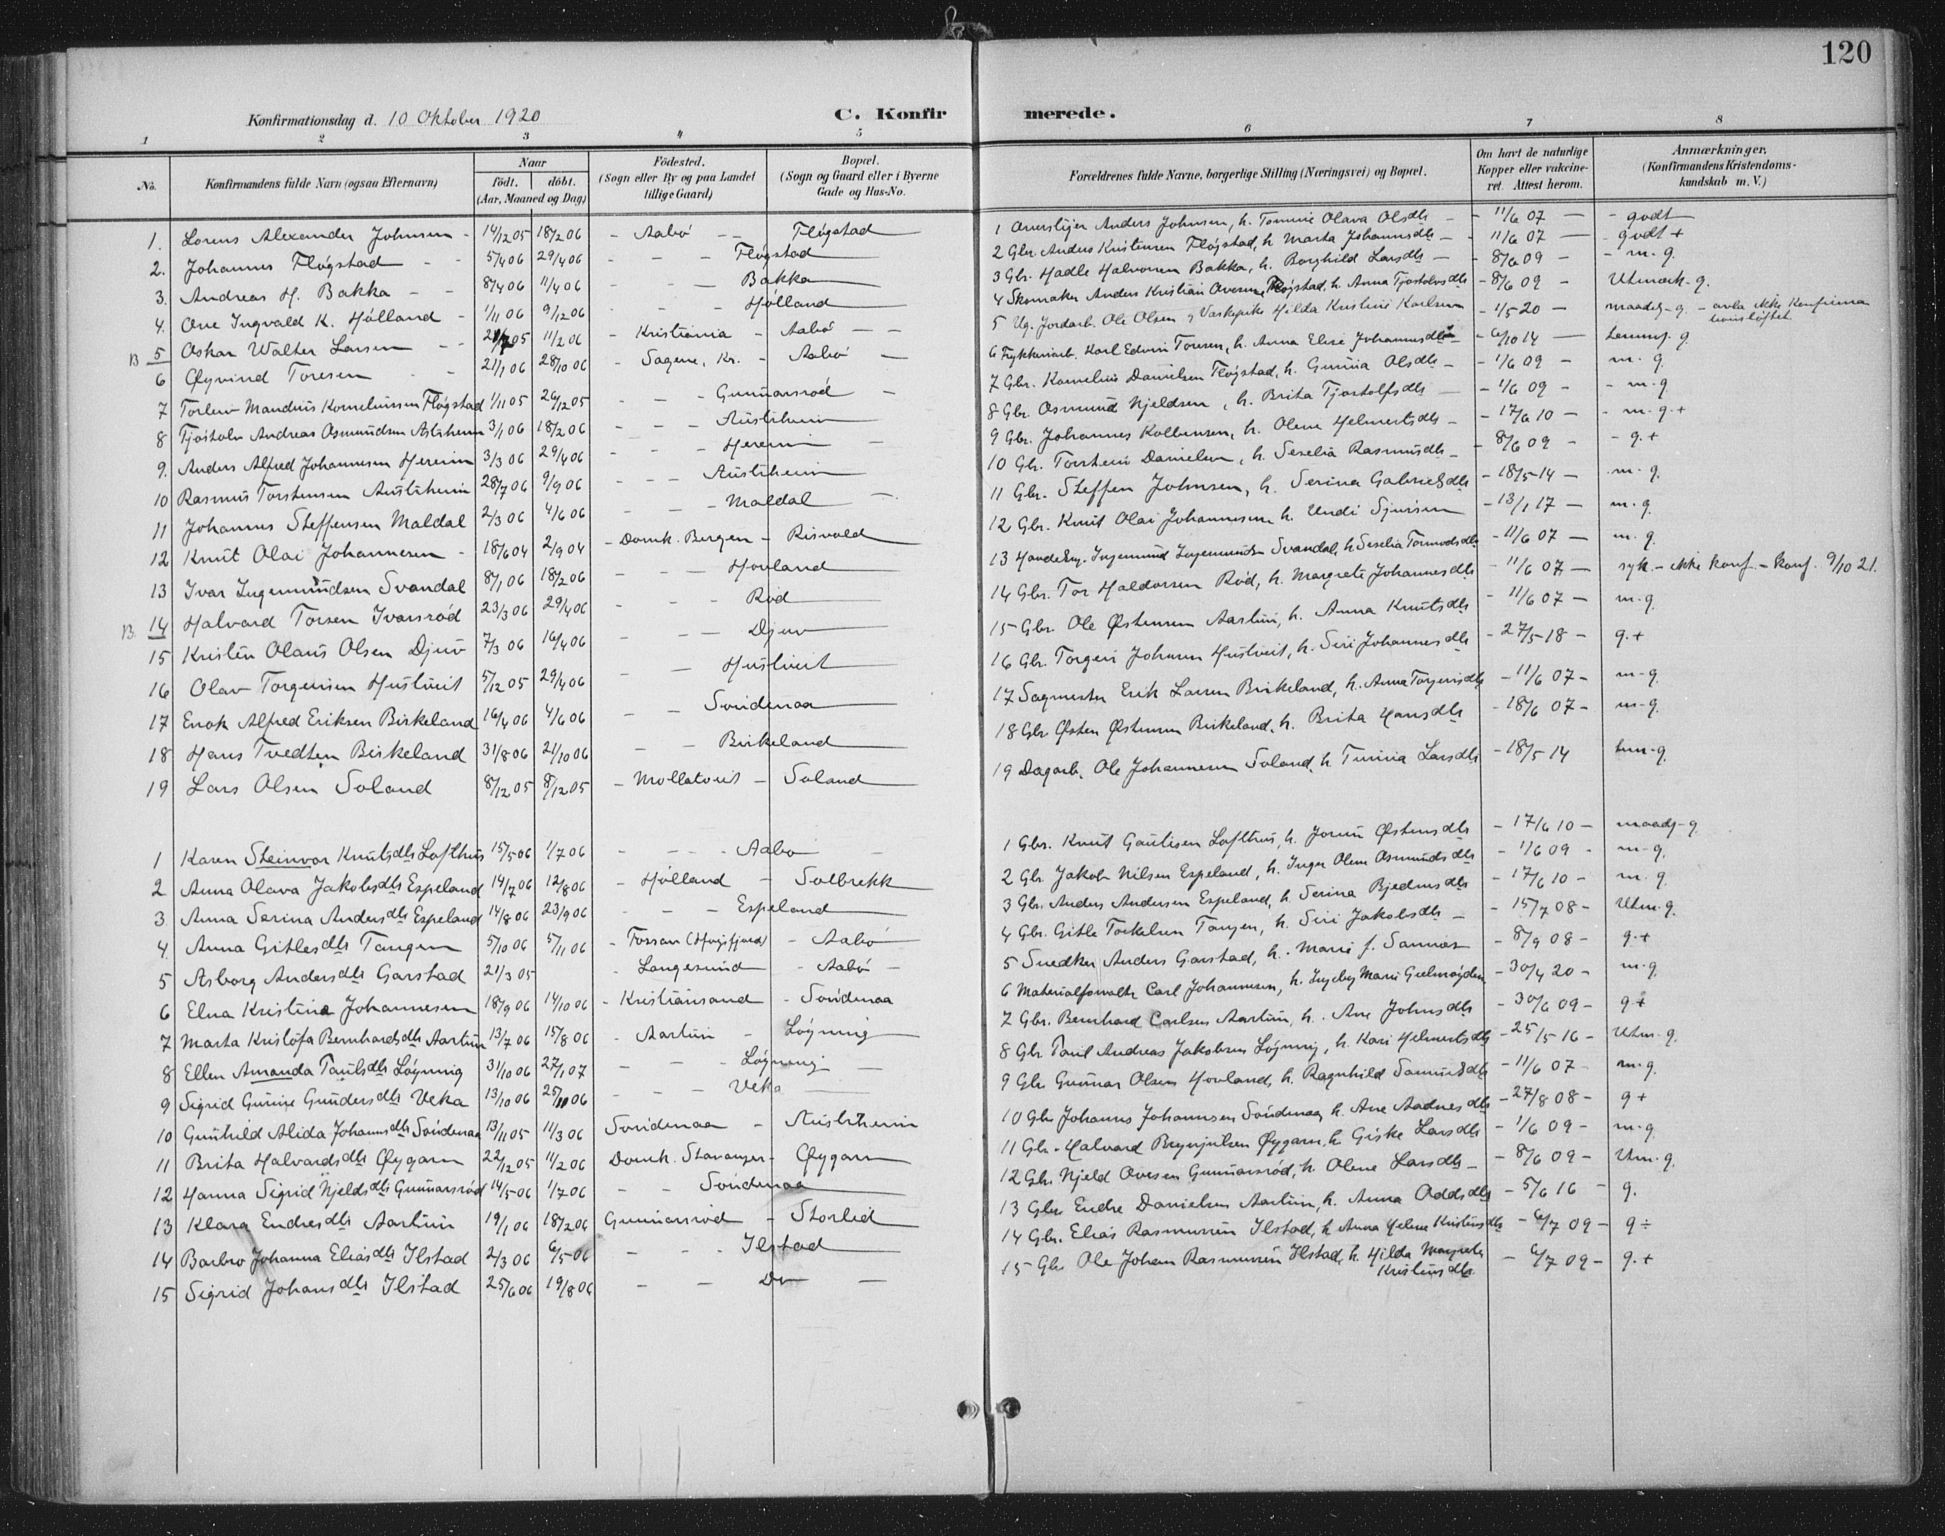 120
Konfirmationsdag d. 10 Oktober 1920 C. Konfirmerede.
1 2 3 4 5 6 7 8
No. Konfirmandens fulde Navn (ogsaa Efternavn) Naar födt. döbt. (Aar, Maaned og Dag) Födested. (Sogn eller By og paa Landet tillige Gaard) Bopæl. (Sogn og Gaard eller i Byerne Gade og Hus-No. Forældrenes fulde Navne, borgerlige Stilling (Næringsvei) og Bopæl. Om havt de naturlige Kopper eller vakcineret. Attest herom. Anmærkninger. (Konfirmandens Kristendomskundskab m. V.)
1. Lorens Alexander Johnsen 14/12 05 18/2 06 Aabö Flögstad 1 Anders Johnsen, h. Tomine Olava Olsdtr 11/6 07 godt
2. Johannes Flögstad 5/4 06 29/4 06 Flögstad 2 Gbr. Anders Kristensen Flögstad, h. Marta Johannsdtr 11/6 07 godt +
3. Andreas H. Bakka 8/4 06 11/4 06 Bakka 3 Gbr. Hadle Halvorsen Bakka, h. Borghild Larsdtr 8/6 09 m. g.
4. Ove Ingvald K. Hölland 1/11 06 9/12 06 Hölland 4 Skomaker Anders Kristian Oversen Flögstad, h. Anna Tjostolvsdtr 8/6 09 Utmerk. g.
B 5 Oskar Walter Larsen 05 11/2 06 Kristiania Aabö 5 Ug. Jordarb. Ole Olsen og Vaskepike Hilda Kristine Karlsen 1/5 20 maadel. g. avla ikke konfirmationsløftet
6 Øyvind Toresen 21/1 06 28/10 06 Sagene, Kr. Aabö 6 Karl Edvin Toresen, h. Anna Elise Johannesdtr 6/10 14 temmg. g
7 Torleiv Mandius Korneliussen Flögstad 1/11 05 26/12 05 Gunnarsröd 7 Gbr. Kornelius Danielsen Flögstad, h. Gunnia Olsdtr 1/6 09 m. g.
8 Tjostolv Andreas Osmundsen Austrheim 3/1 06 18/2 06 Austrheim 8 Gbr. Osmund Njeldsen, h. Brita Tjostolfsdtr 1/6 09 m. g.
9. Anders Alfred Johannesen Hereim 3/3 06 29/4 06 Hereim 9 Gbr. Johannes Kolbensen, h. Olene Helmertsdtr 17/6 10 m. g. +
10 Rasmus Torstensen Austrheim 28/7 06 9/9 06 Austrheim 10 Gbr. Torstein Danielsen, h. Seselia Rasmusdtr 8/6 09 g. +
11 Johannes Steffensen Maldal 2/3 06 4/6 06 Maldal 11 Gbr. Steffen Johnsen, h. Serina Gabrielsdtr 18/5 14 m. g.
12 Knut Olai Johannesen 18/6 04 2/9 04 Domk. Bergen Risvold 12 Gbr. Knut Olai Johannesen h. Undi Sjursen 13/1 17 m. g.
13 Ivar Ingemundsen Svandal 8/1 06 18/2 06 Hovland 13 Ingemund Ingemundsen Svandal, h. Seselia Tormodsdtr 11/6 07 m. g.
B. 14 Halvard Torsen Ivarsröd 23/3 06 29/4 06 Röd 14 Gbr. Tor Haldorsen Röd, h. Margrete Johannesdtr 11/6 07 syk. - ikke konf. - konf. 9/10 21.
15 Kristen Olaus Olsen Djuv 7/3 06 16/4 06 Djuv 15 Gbr. Ole Østensen Aartun, h. Anna Knutsdtr 11/6 07 m. g.
16 Olav Torgeirsen Hustveit 5/12 05 29/4 06 Hustveit 16 Gbr. Torgeir Johnsen Hustveit, h. Siri Johannesdtr 27/5 18 g. +
17 Enok Alfred Eriksen Birkeland 16/4 06 4/6 06 Söndenaa 17 Sagmester Erik Larsen Birkeland, h. Anna Torgeirsdtr 11/6 07 m. g.
18 Hans Tvedten Birkeland 31/8 06 21/10 06 Birkeland 18 Gbr Østen Østensen Birkeland, h. Brita Hansdtr 18/6 07 m. g.
19 Lars Olsen Soland 8/12 05 8/12 05 Mollatveit Soland 19 Dagarb. Ole Johannesen Soland, h. Tunnia Larsdtr 18/5 14 tem. g.
1 Karen Steinvor Knutsdtr Lofthus 15/5 06 1/7 06 Aabö 1 Gbr. Knut Gautesen Lofthus, h. Jorun Østensdtr 17/6 10 maadg. g
2 Anna Olava Jakobsdtr Espeland 14/7 06 12/8 06 Hölland Solbrekk 2 Gbr. Jakob Nilsen Espeland, h. Inger Olene Osmundsdtr 1/6 09 m. g.
3 Anna Serina Andersdtr Espeland 14/8 06 23/9 06 Espeland 3 Gbr. Anders Andersen Espeland, h. Serina Bjednesdtr 17/6 10 m. g.
4. Anna Gitlesdtr Tangen 5/10 06 5/11 06 Fossan (Høgsfjord) Aabö 4 Gbr. Gitle Torkelsen Tangen, h. Siri Jakobsdtr 15/7 08 Utm. g.
5 Asborg Andersdtr Garstad 21/3 05 Langesund Aabö 5 Snedker Anders Garstad, h. Marie f. Sannæs 8/9 08 g. +
6 Elna Kristine Johannesen 18/9 06 14/10 06 Kristiansand Söndenaa 6 Materialforvalter Carl Johannesen, h. Ingeborg Marie 30/4 20 m. g.
7 Marta Kristofa Bernhardsdtr Aartun 13/7 06 15/8 06 Aartun Löyning 7 Gbr. Bernhard Carlsen Aartun, h. Ane Johnsdtr 30/6 09 g +
8 Ellen Amanda Paulsdtr Löyning 31/10 06 27/1 07 Löyning 8 Gbr Paul Andreas Jakobsen Löyning, h. Kari Helmertsdtr 25/5 16 Utm. g.
9 Sigrid Gunine Gundersdtr Veka 13/10 06 25/11 06 Veka 9 Gbr Gunnar Olsen Hovland, h. Ragnhild Samuelsdtr 11/6 07 m. g.
10 Gunhild Alida Johannesdtr Söndenaa 13/11 05 11/3 06 Söndenaa Austrheim 10 Gbr Johannes Johannessen Söndenaa h. Ane Aadnesdtr 27/8 08 g +
11 Brita Halvardsdtr Øygarn 22/12 05 11/2 06 Domk. Stavanger Øygarn 11 Gbr. Halvard Brynjulsen Øygarn, h. Giske Larsdtr 1/6 09 m. g.
12 Hanna Sigrid Njeldsdtr Gunnarsröd 14/5 06 1/7 06 Söndenaa 12 Gbr. Njeld Ovesen Gunnarsröd, h. Olene Larsdtr 8/6 09 Utm. g.
13 Klara Endresdtr Aartun 19/1 06 18/2 06 Gunnarsröd Storlid 13 Gbr Endre Danielsen Aartun, h. Anna Oddsdtr 5/6 16 g.
14 Barbro Johanna Eliasdtr Ilstad 2/3 06 6/5 06 Ilstad 14 Gbr. Elias Rasmussen Ilstad, h. Anna Helene Kristensdtr 6/7 09 g ÷
15 Sigrid Johansdtr Ilstad 25/6 06 19/8 06 Do 15 Gbr Ole Johan Rasmussen Ilstad, h. Hilda Margrete Kristensdtr. 6/7 09 g. +